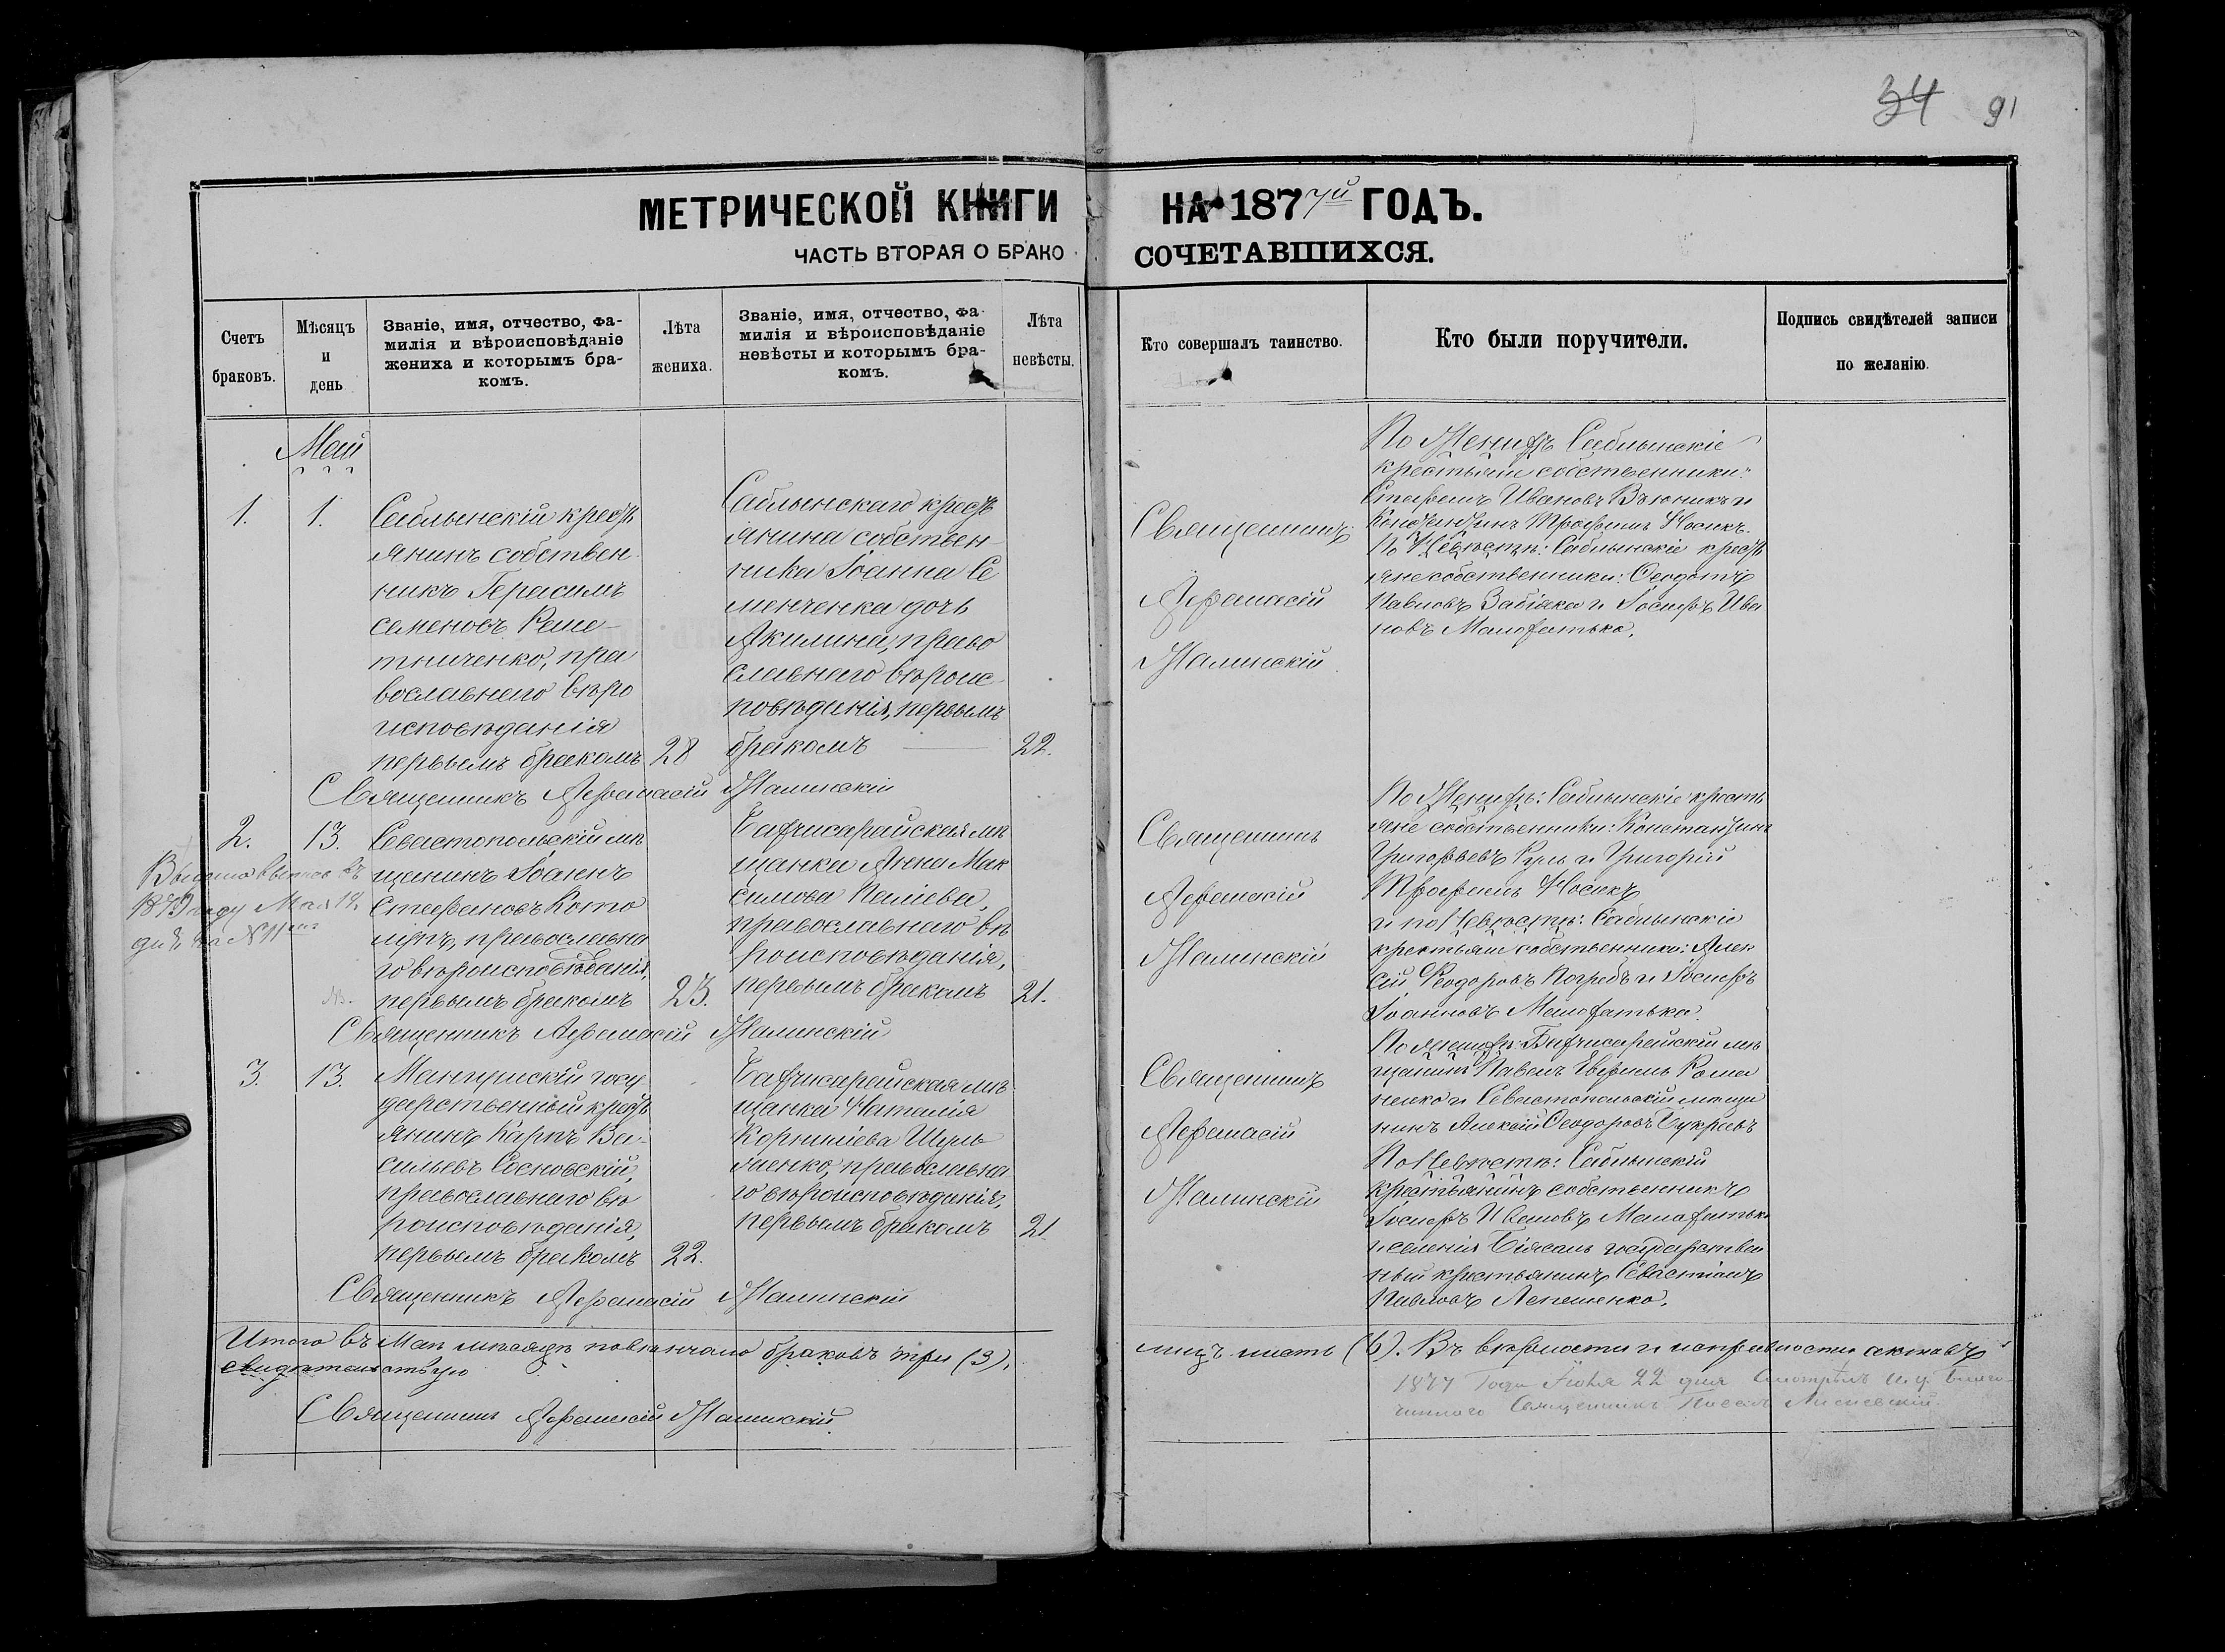 34 91
МЕТРИЧЕСКОЙ КНИГИ НА 1877й ГОДЪ.
ЧАСТЬ ВТОРАЯ О БРАКОСОЧЕТАВШИХСЯ.
Счетъ браковъ.
Мѣсяцъ и день
Званіе, имя, отчество, фа-
милія и вѣроисповѣданіе
жениха и которымъ бра-
комъ.
Лѣта жениха.
Званіе, имя, отчество, фа-
милія и вѣроисповѣданіе
невѣсты и которымъ бра-
комъ.
Лѣта невѣсты.
Кто совершалъ таинство.
Кто были поручители.
Подпись свидѣтелей записи
по желанію.
Май
1. 1.
Саблынскій крестъ
янинъ собствен
никъ Герасимъ
Семеновъ Реше-
тниченко, пра
вославнаго вѣро
исповѣданія
первымъ бракомъ 28
Саблынскаго крестъ
янина собствен-
ника Іоанна Се
менченка дочь
Акилина, право
славнаго вѣроис-
повѣданія, первымъ
бракомъ 22.
Священникъ
Афанасій
Жалинскій
По Женихѣ Саблынскіе
крестьяне собственники:
Стефанъ Ивановъ Вьюникъ и
Константинъ Трофимъ Носикъ.
По Невѣстѣ: Саблынскіе крестъ
яне собственники: Ѳеодотъ
Павловъ Забіяка и Іосифъ Ива
новъ Малофатька.
Священникъ Афанасій Жалинскій
2. 13.
Севастопольскій мѣ
щанинъ Іоаннъ
Стефановъ
православна
го вѣроисповѣданія,
первымъ бракомъ 23.
Бахчисарайская мѣ
щанка Анна Мак
симова
православнаго вѣ
роисповѣданія,
первымъ бракомъ 21.
1879 году Мая 18.
дня за № 11
Священникъ
Афанасій
Жалинскій
По Женихѣ: Саблынскіе кресть
яне собственники: Константинъ
Григорьевъ Руль и Григорій
Трофимъ Носикъ
и по Невѣстѣ: Саблынскіе
крестьяне собственники: Алек
сій Ѳеодоровъ Погребъ и Іосифъ
Іоанновъ Малофатька.
Священникъ Афанасій Жалинскій
3. 13.
Мангушскій госу
дарственный крестъ
янинъ Карпъ Ва-
сильевъ Сосновскій,
православнаго вѣ
роисповѣданія,
первымъ бракомъ 22.
Бахчисарайская мѣ-
щанка Наталія
Корниліева Шуль
православна
го вѣроисповѣданія,
первымъ бракомъ 21.
Священникъ
Афанасій
Жалинскій
По Женихѣ: Бахчисарайскій мѣ
щанинъ Павелъ Ефимъ Рома
ненко и Севастопольскій мѣща
нинъ Алексій Ѳеодоровъ
По Невѣстѣ: Саблынскій
крестьянинъ собственникъ
Іосифъ Ивановъ Малофатька
и селенія Біясалъ государствен
ный крестьянинъ Севастіанъ
Павловъ Лепешенко.
Священникъ Афанасій Жалинскій
Итого въ Маѣ мѣсяцѣ повѣнчано браковъ три (3), лицъ шесть (6). Въ вѣрности и исправности актовъ
свидѣтельствую
Священникъ Афанасій Жалинскій.
1877 Года Іюня 22 дня Смотрѣлъ и. д. Благо-
чиннаго Священникъ